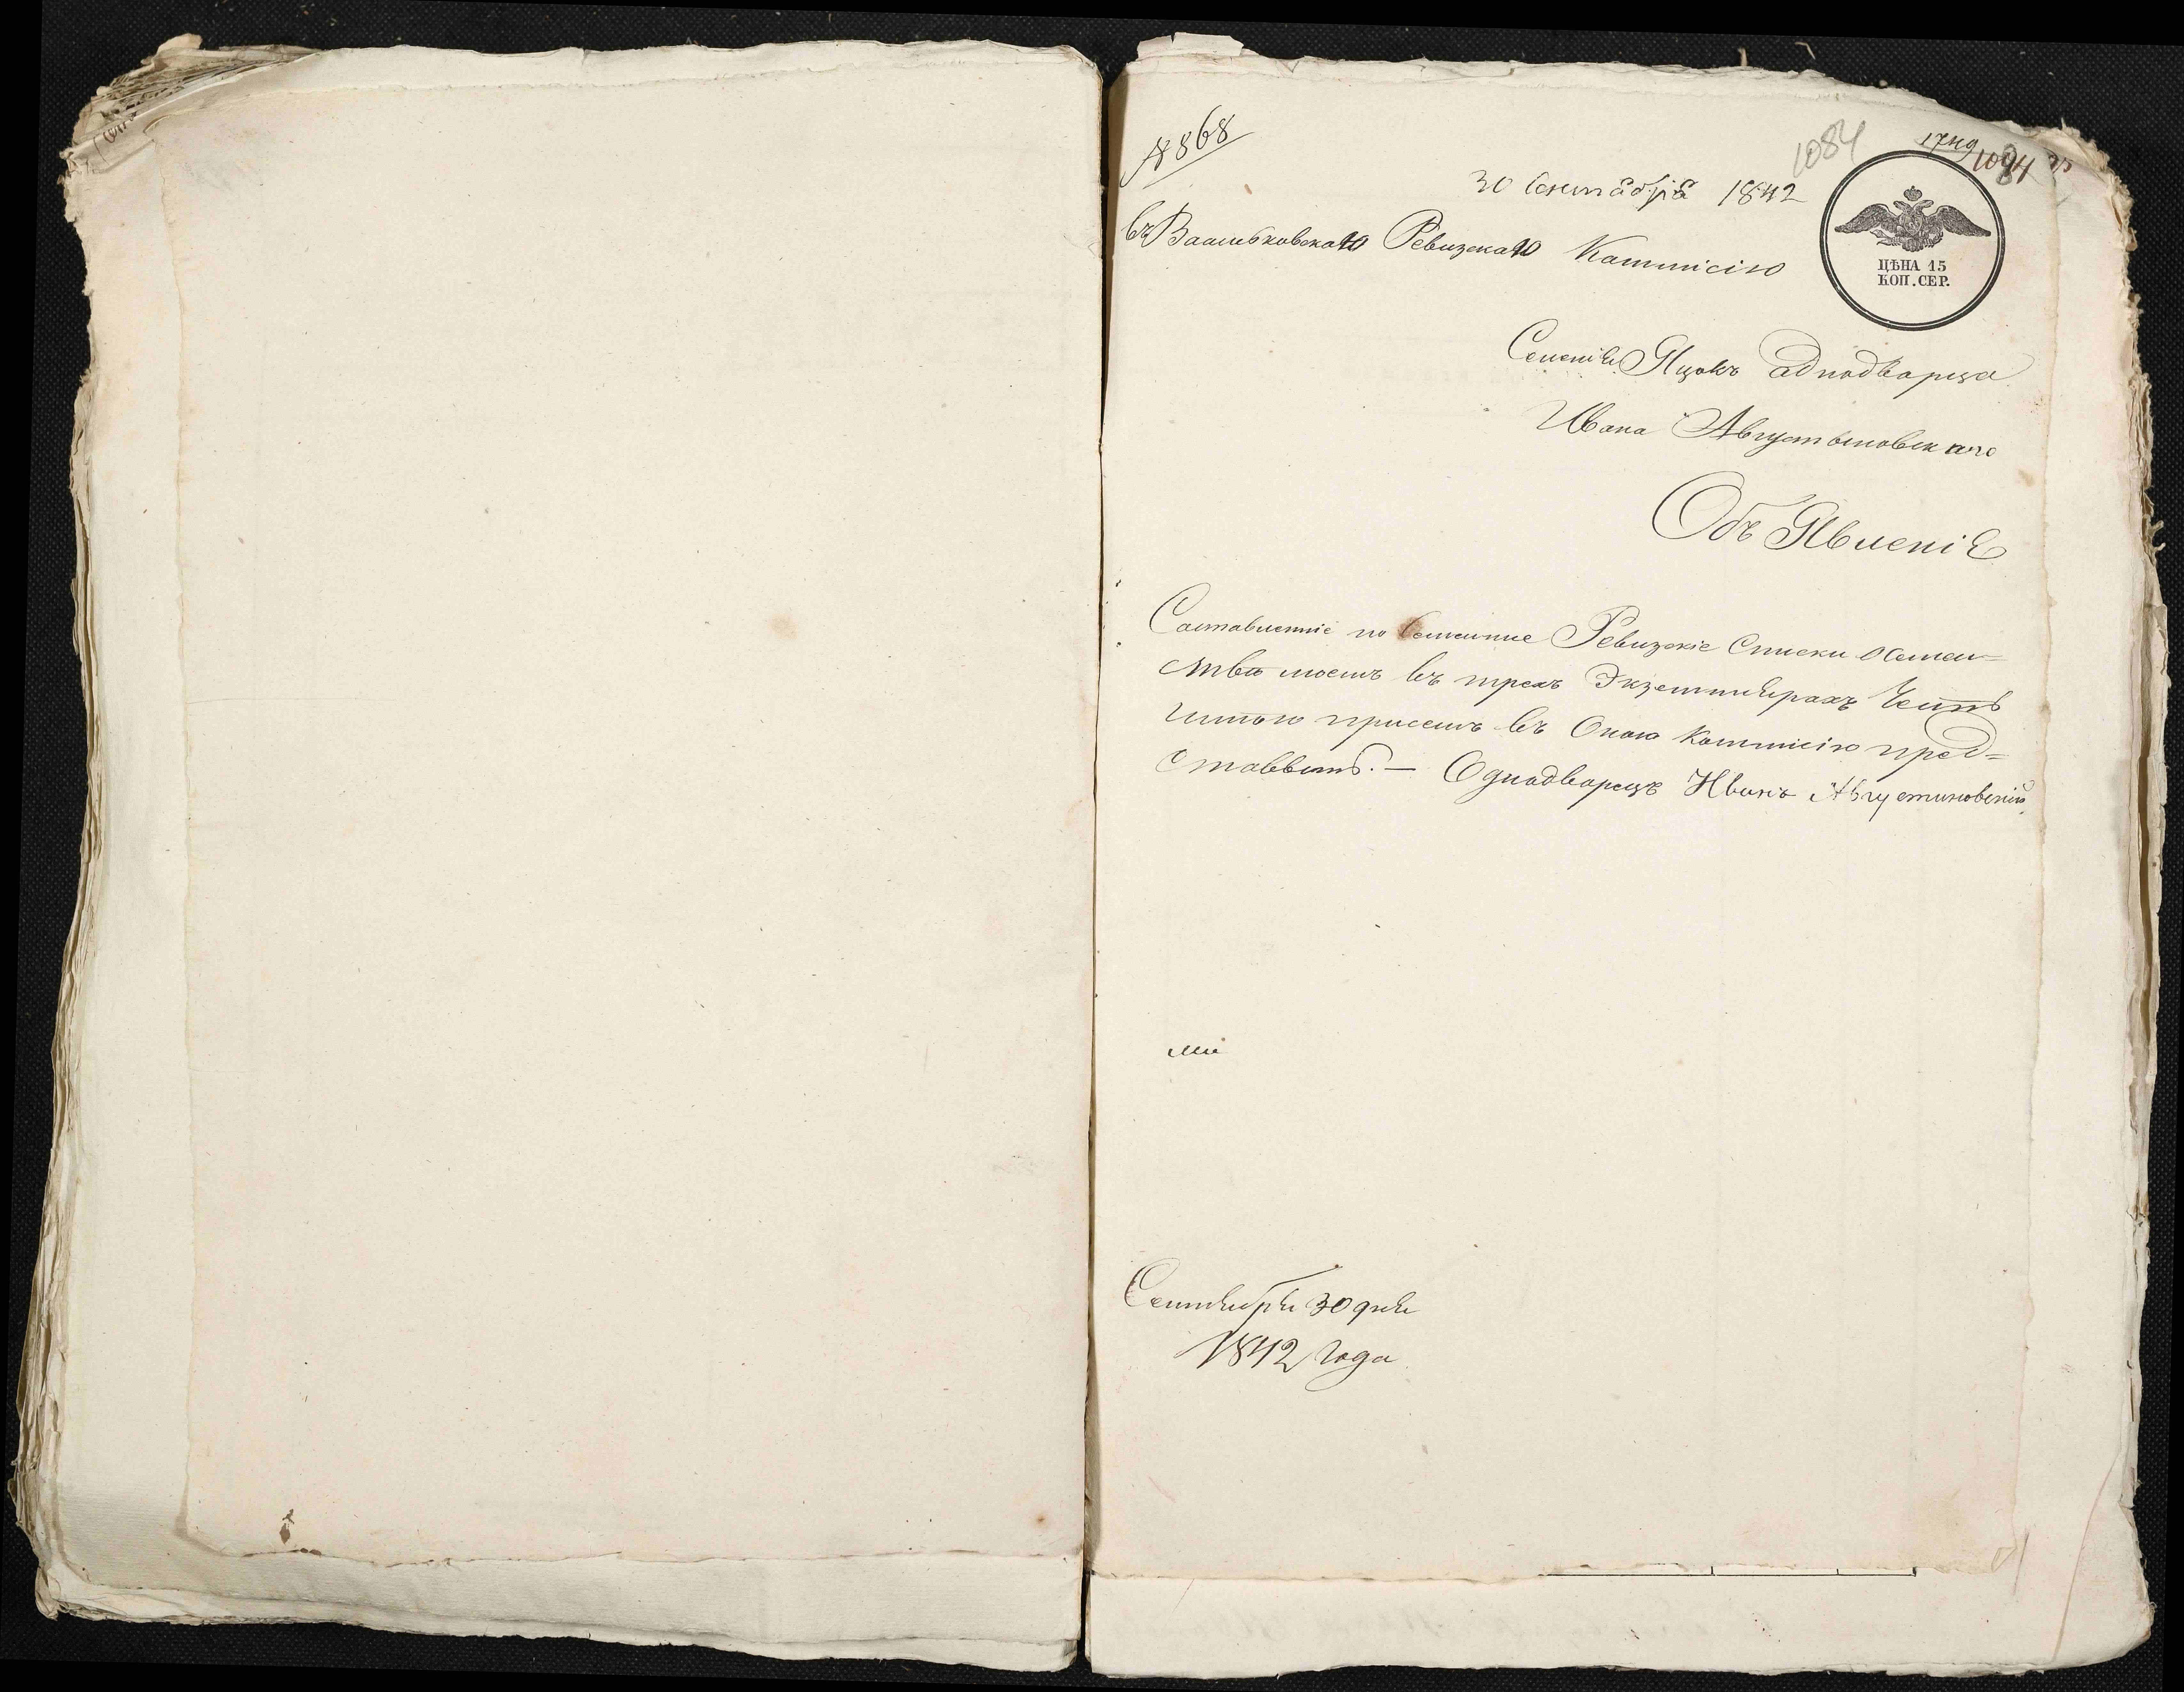 № 868
1084
1749
1094
30 Сентабріа 1842
въ Васильковскаю Ревизскаю Коммисію
ЦѢНА 15
КОП. СЕР.
Селенія Яцокъ аднодворца
Ивана Августыновскаго
Объ Явленіе
Составленніе по Семейние Ревизскіе Списки о семей=
ствѣ моемъ въ трехъ Экземплярахъ Честь
имѣю присемъ въ Оною Коммисію пред=
ставвить. — Однодворецъ Иванъ Августиновскій
Сентября 30 дня
1842 Года